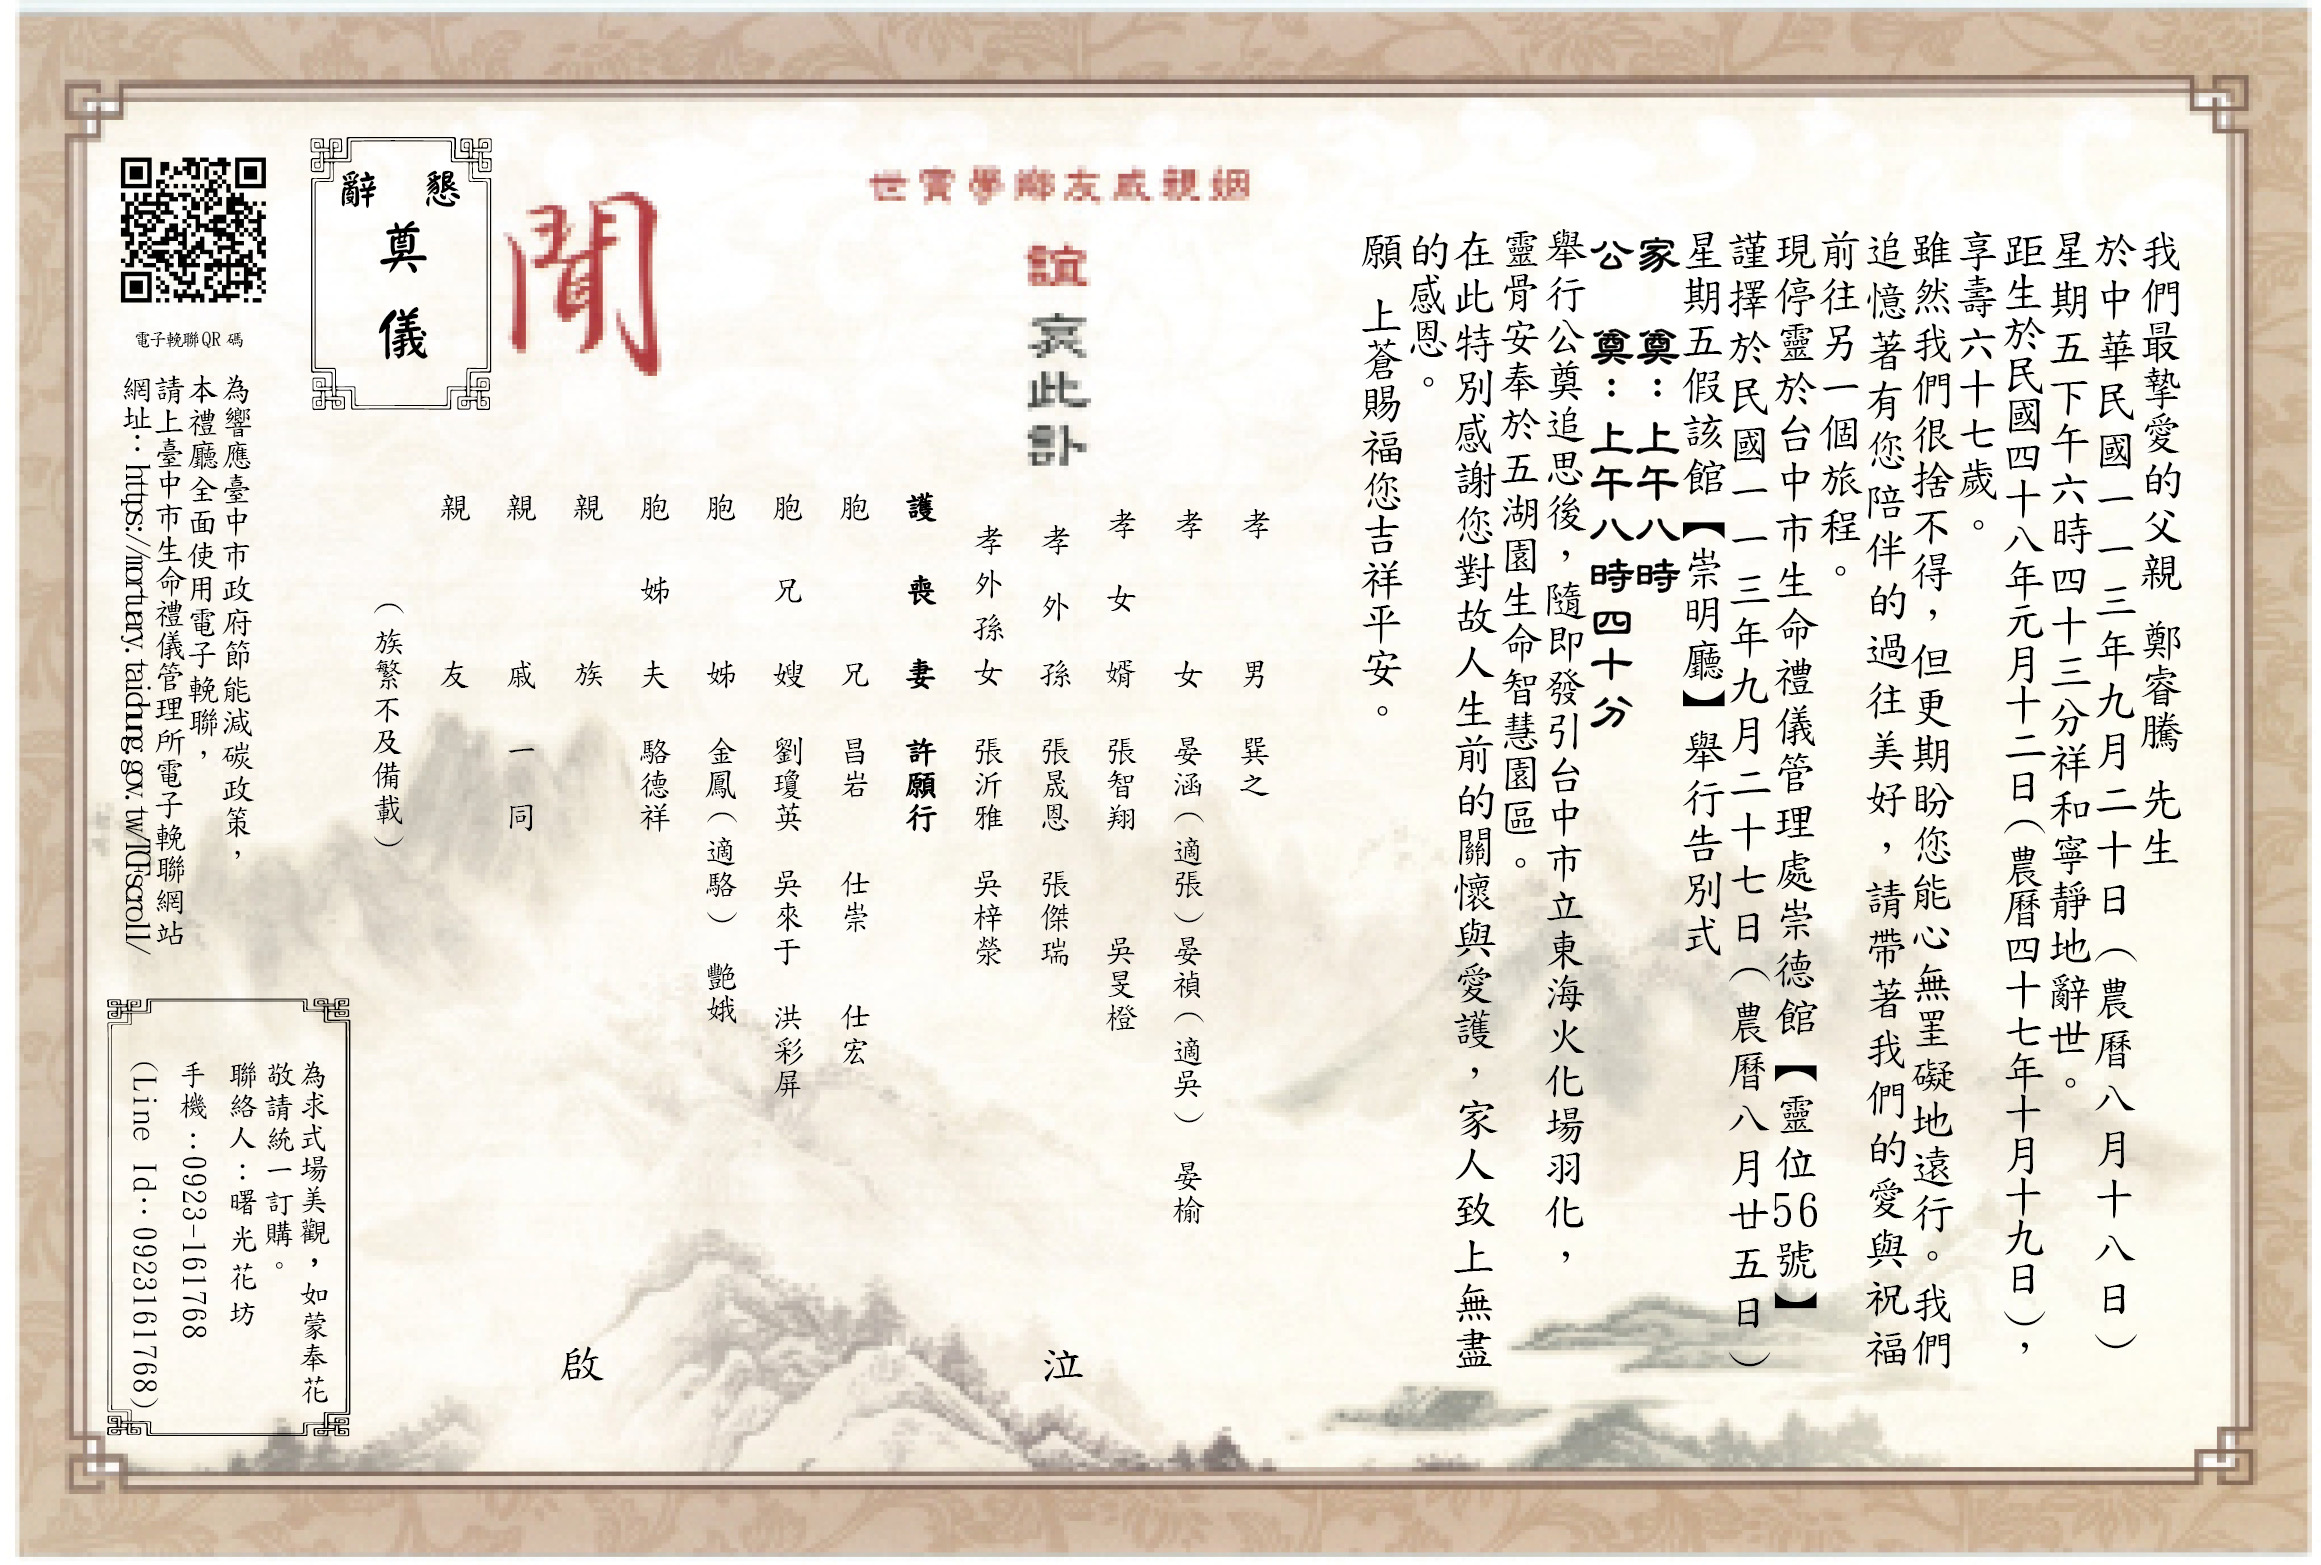 我們最摯愛的父親 鄭睿騰 先生
於中華民國一一三年九月二十日（農曆八月十八日）
星期五下午六時四十三分祥和寧靜地辭世。
距生於民國四十八年元月十二日（農曆四十七年十月十九日），
享壽六十七歲。
雖然我們很捨不得，但更期盼您能心無罣礙地遠行。我們
追憶著有您陪伴的過往美好，請帶著我們的愛與祝福
前往另一個旅程。
現停靈於台中市生命禮儀管理處崇德館【靈位56號】
謹擇於民國一一三年九月二十七日（農曆八月廿五日）
星期五假該館【崇明廳】舉行告別式
家 奠：上午八時
公 奠：上午八時四十分
舉行公奠追思後，隨即發引台中市立東海火化場羽化，
靈骨安奉於五湖園生命智慧園區。
在此特別感謝您對故人生前的關懷與愛護，家人致上無盡
的感恩。
願 上蒼賜福您吉祥平安。
姻親戚友鄉學寅世
誼
哀此訃
聞
孝男 巽之
孝女 晏涵（適張）晏禎（適吳） 晏榆
孝女婿 張智翔 吳旻橙
孝外孫 張晟恩 張傑瑞
孝外孫女 張沂雅 吳梓滎
護喪妻 許願行
胞兄 昌岩 仕崇 仕宏
胞兄嫂 劉瓊英 吳來于 洪彩屏
胞姊 金鳳（適駱） 艷娥
胞姊夫 駱德祥
親族
親戚 一同
親友
（族繁不及備載）
泣
啟
懇辭
奠儀
電子輓聯QR 碼
為響應臺中市政府節能減碳政策，
本禮廳全面使用電子輓聯，
請上臺中市生命禮儀管理所電子輓聯網站
網址：https://mortuary.taichung.gov.tw/TCFscroll/
為求式場美觀，如蒙奉花
敬請統一訂購。
聯絡人：曙光花坊
手機：0923-161768
(Line Id：0923161768)